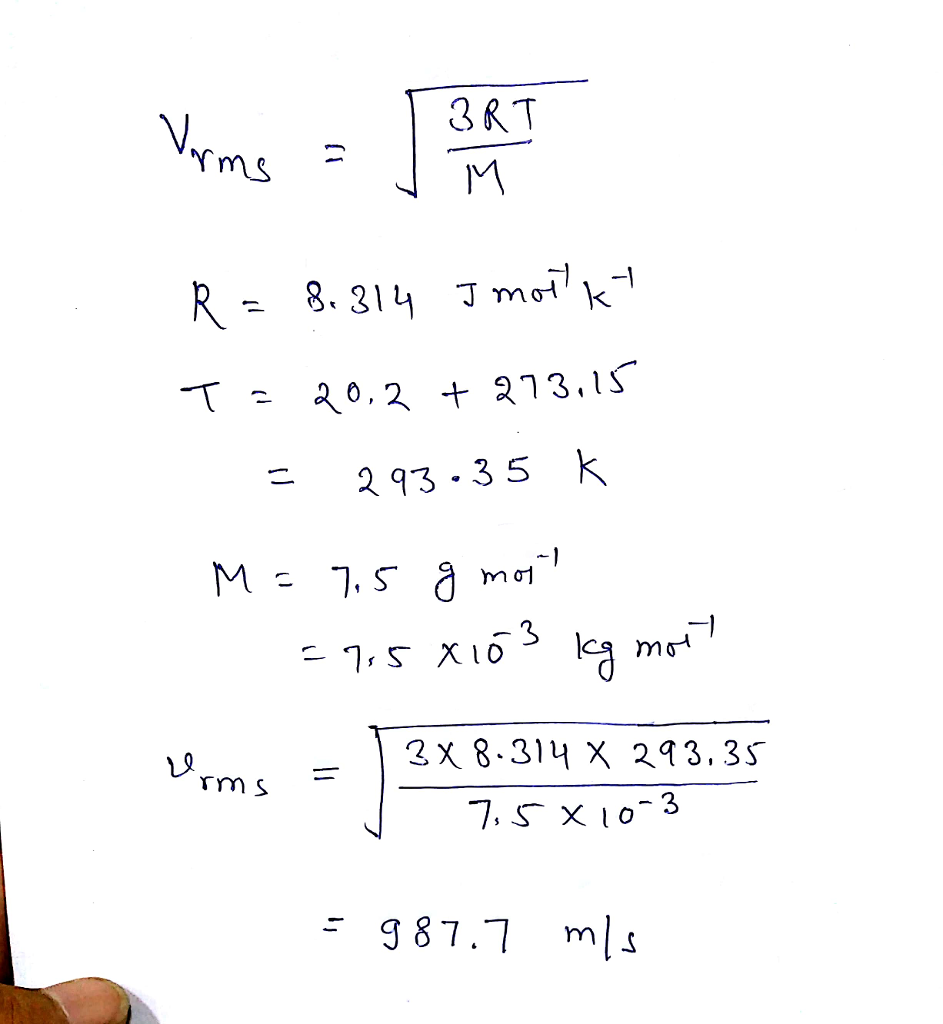 Vrms = √(3RT / M)
R = 8.314 J mol⁻¹ K⁻¹
T = 20.2 + 273.15
= 293.35 K
M = 7.5 g mol⁻¹
= 7.5 × 10⁻³ kg mol⁻¹
vrms = √(3 × 8.314 × 293.35 / 7.5 × 10⁻³)
= 987.7 m/s